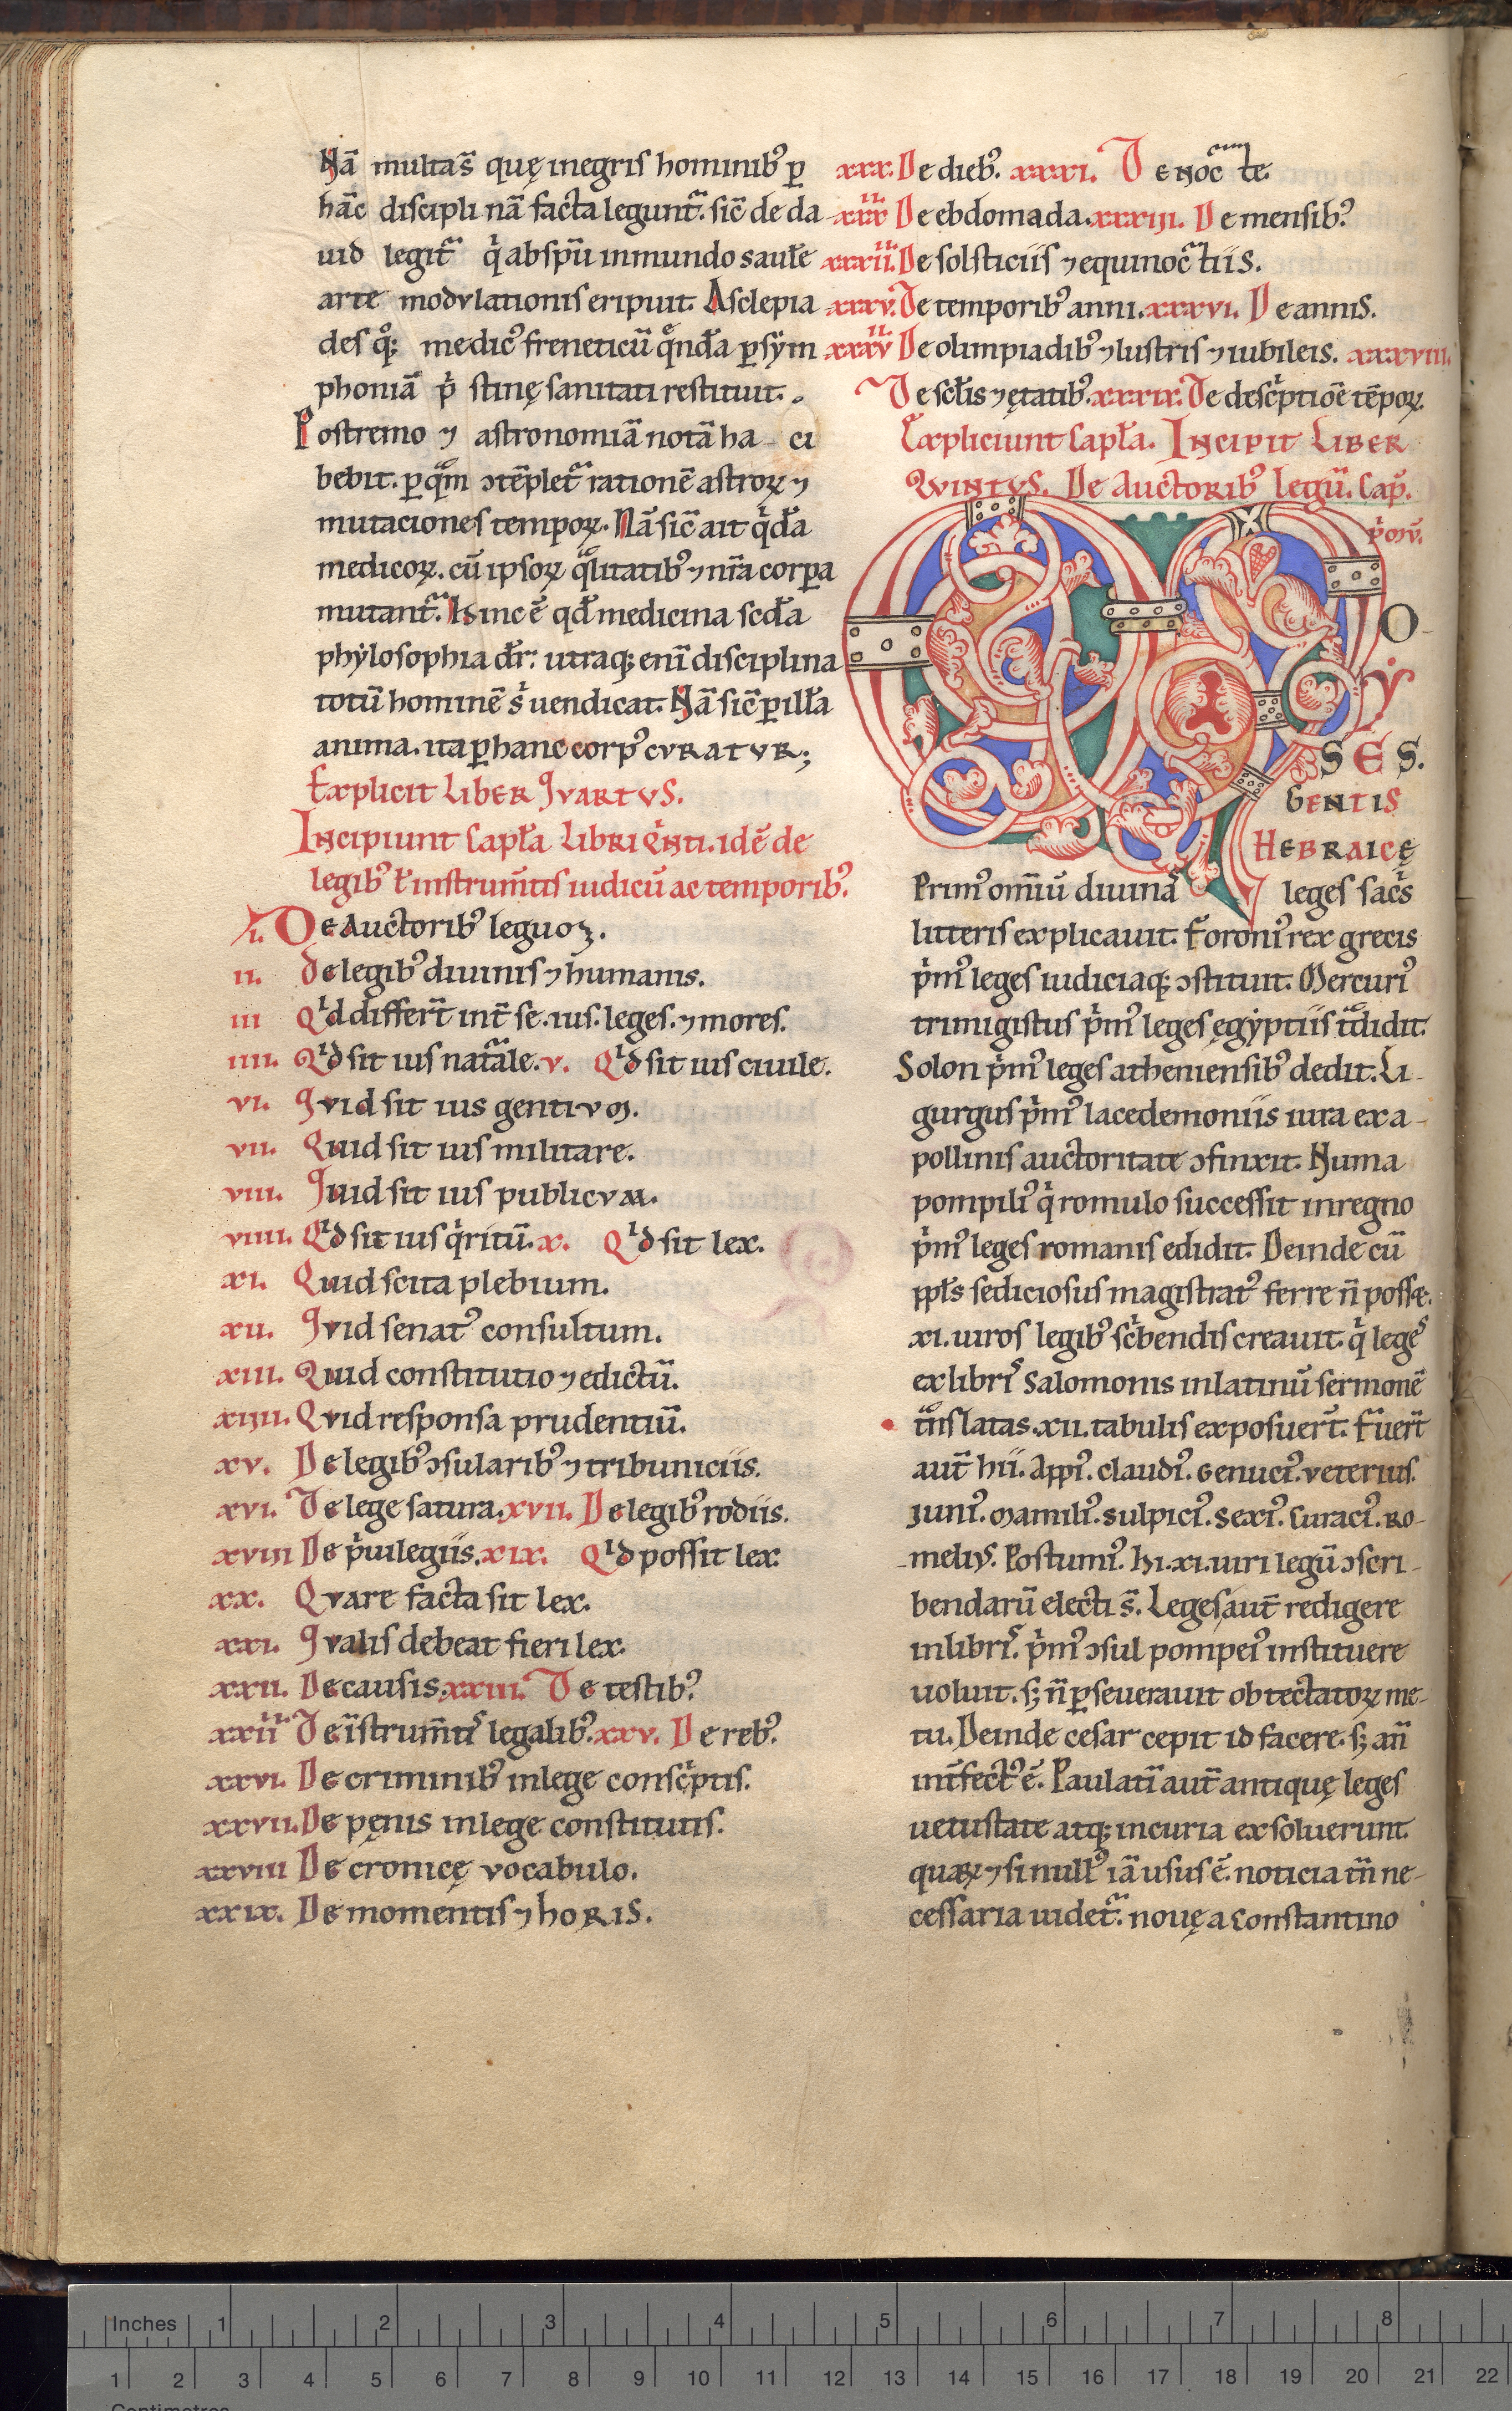 Nā multas̄ quę inegris hominibꝰ ꝑ
hāc disciplinā facta leguntᷓ. sic̄ de da
uid legitᷓ qͥ abspū inmundo saulē
arte modvlationis eripuit. Asclepia
des qͦꝫ medicꝰ freneticū qͦndā ꝑ sẏm
phoniā pͥstinę sanitati restituit.
Postremo ⁊ astronomiā notā ha ci
bebit. ꝑ qᷓm ↄtēpletᷓ rationē astroꝝ ⁊
mutaciones tempoꝝ. Nā sic̄ ait qͥdā
medicoꝝ. cū ipsoꝝ qᷓlitatibꝰ ⁊ nr̄a corpa
mutantᷓ. Hinc ē qđ medicina scđa
phẏlosophia dr̄. utraqꝫ enī disciplina
totū hominē sͥ uendicat. Nā sic̄ ꝑ illā
anima. ita ꝑ hanc corpꝰ cvratvr;
Explicit Liber Qvartvs.
Incipiunt Capła Libri Qͥnti. idē de
legibꝰ ł instrum̄tis iudicū ac temporibꝰ.
i. De Auctoribꝰ leguoꝫ.
ii. De legibꝰ diuinis ⁊ humanis.
iii Qͥd differt̄ int̄ se. ius. leges. ⁊ mores.
iiii. Qͥd sit ius natᷓale. v. Qͥd sit ius ciuile.
vi. Qvid sit ius gentivm.
vii. Quid sit ius militare.
viii. Quid sit ius publicvm.
viiii. Qͥd sit ius qͥritū. x. Qͥd sit lex.
xi. Quid scita plebium.
xii. Qvid senatꝰ consultum.
xiii. Quid constitutio ⁊ edictū.
xiiii. Qvid responsa prudentiū.
xv. De legibꝰ ↄsularibꝰ ⁊ tribuniciis.
xvi. De lege satura. xvii. De legibꝰ rodiis.
xviii De pͥuilegiis. xix. Qͥd possit lex.
xx. Qvare facta sit lex.
xxi. Qvalis debeat fieri lex.
xxii. De causis. xxiii. De testibꝰ.
xxiiii De īstrum̄tis legalibꝰ. xxv. De rebꝰ.
xxvi. De criminibꝰ inlege conscͥptis.
xxvii. De pęnis inlege constitutis.
xxviii De cronicę vocabulo.
xxix. De momentis ⁊ horis.
xxx. De diebꝰ. xxxi. De nocᷓte.
xxxii De ebdomada. xxxiii. De mensibꝰ.
xxxiiii. De solsticiis ⁊ equinocᷓtiis.
xxxv. De temporibꝰ anni. xxxvi. De annis.
xxxvii De olimpiadibꝰ ⁊ lustris ⁊ iubileis. xxxviii.
De scłis ⁊ ętatibꝰ. xxxix. De descͥptiōe tēpoꝝ.
Expliciunt Capła. Incipit Liber
Qvintvs. De Auctoribꝰ Legū. Cap̄.
pͥmū.
MO
Y
SES.
Gentis
Hebraicę
Primꝰ omniū diuinas leges sacͥs
litteris explicauit. Foronꝰ rex grecis
pͥmꝰ leges iudiciaqꝫ ↄstituit. Mercuriꝰ
trimigistus pͥmꝰ leges ęgẏptiis tᷓdidit.
Solon pͥmꝰ leges atheniensibꝰ dedit. Li-
gurgus pͥmꝰ lacedemoniis iura ex a-
pollinis auctoritate ↄfinxit. Numa
pompiliꝰ qͥ romulo successit inregno
pͥmꝰ leges romanis edidit. Deinde cū
ppłs sediciosus magistratꝰ ferre n̄ possæ.
xi. uiros legibꝰ scͥbendis creauit. qͥ leges
ex libris Salomonis inlatinū sermonē
tᷓnslatas. xii. tabulis exposuert̄. Fuert̄
aut̄ hii. Appiꝰ. Claudiꝰ. Genuciꝰ. Veterius.
Iuniꝰ. Mamiliꝰ. Sulpiciꝰ. Sexiꝰ. Curaciꝰ. Ro-
meliꝰ. Postumiꝰ. Hi. xi. uiri legū ↄscri-
bendarū electi s̄. Leges aut̄ redigere
inlibris. pͥmꝰ ↄsul pompeiꝰ instituere
uoluit. sꝫ n̄ ꝑseuerauit obtectatoꝝ me-
tu. Deinde cesar cepit id facere. sꝫ an̄
int̄fectꝰ ē. Paulatī aut̄ antiquę leges
uetustate atqꝫ incuria exsoluerunt.
quaꝝ ⁊si nullꝰ iā usus ē. noticia tn̄ ne-
cessaria uidetᷓ. nouę a Constantino
Inches 1 2 3 4 5 6 7 8
1 2 3 4 5 6 7 8 9 10 11 12 13 14 15 16 17 18 19 20 21 22
Centimetres